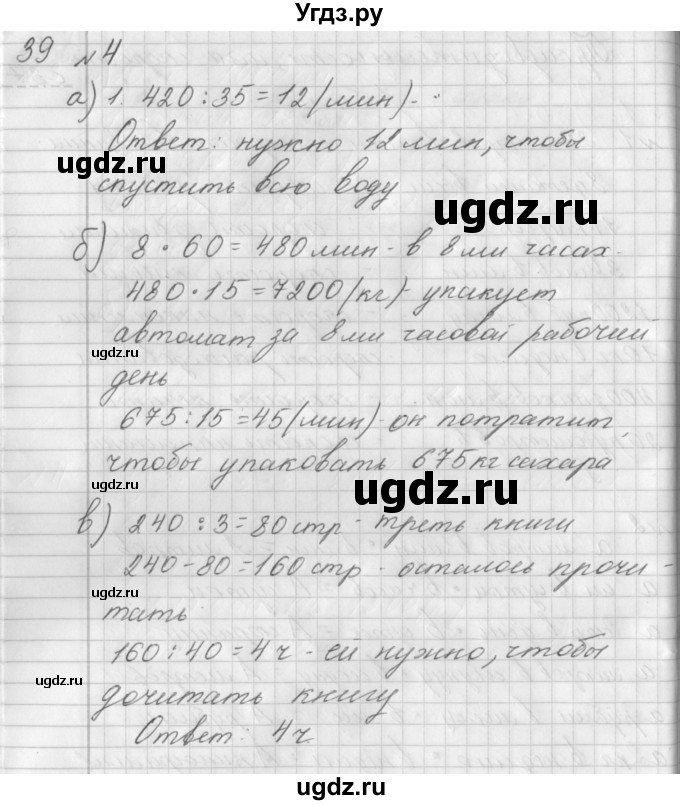 Угдз.ру
39 №4
а) 1. 420 : 35 = 12 (мин) -
Ответ: нужно 12 мин, чтобы
ugdz.ru
спустить всю воду
ugdz.ru
б) 8 · 60 = 480 мин - в 8 ми часах.
480 · 15 = 7200 (кг) - упакует
автомат за 8 ми часовой рабочий
ugdz.ru
день
675 : 15 = 45 (мин) - он потратит,
чтобы упаковать 675 кг сахара
ugdz.ru
ugdz.ru
в) 240 : 3 = 80 стр - треть книги
240 - 80 = 160 стр - осталось прочи -
ugdz.ru
тать
160 : 40 = 4 ч - ей нужно, чтобы
ugdz.ru
дочитать книгу
Ответ: 4 ч
ugdz.ru
ugdz.ru